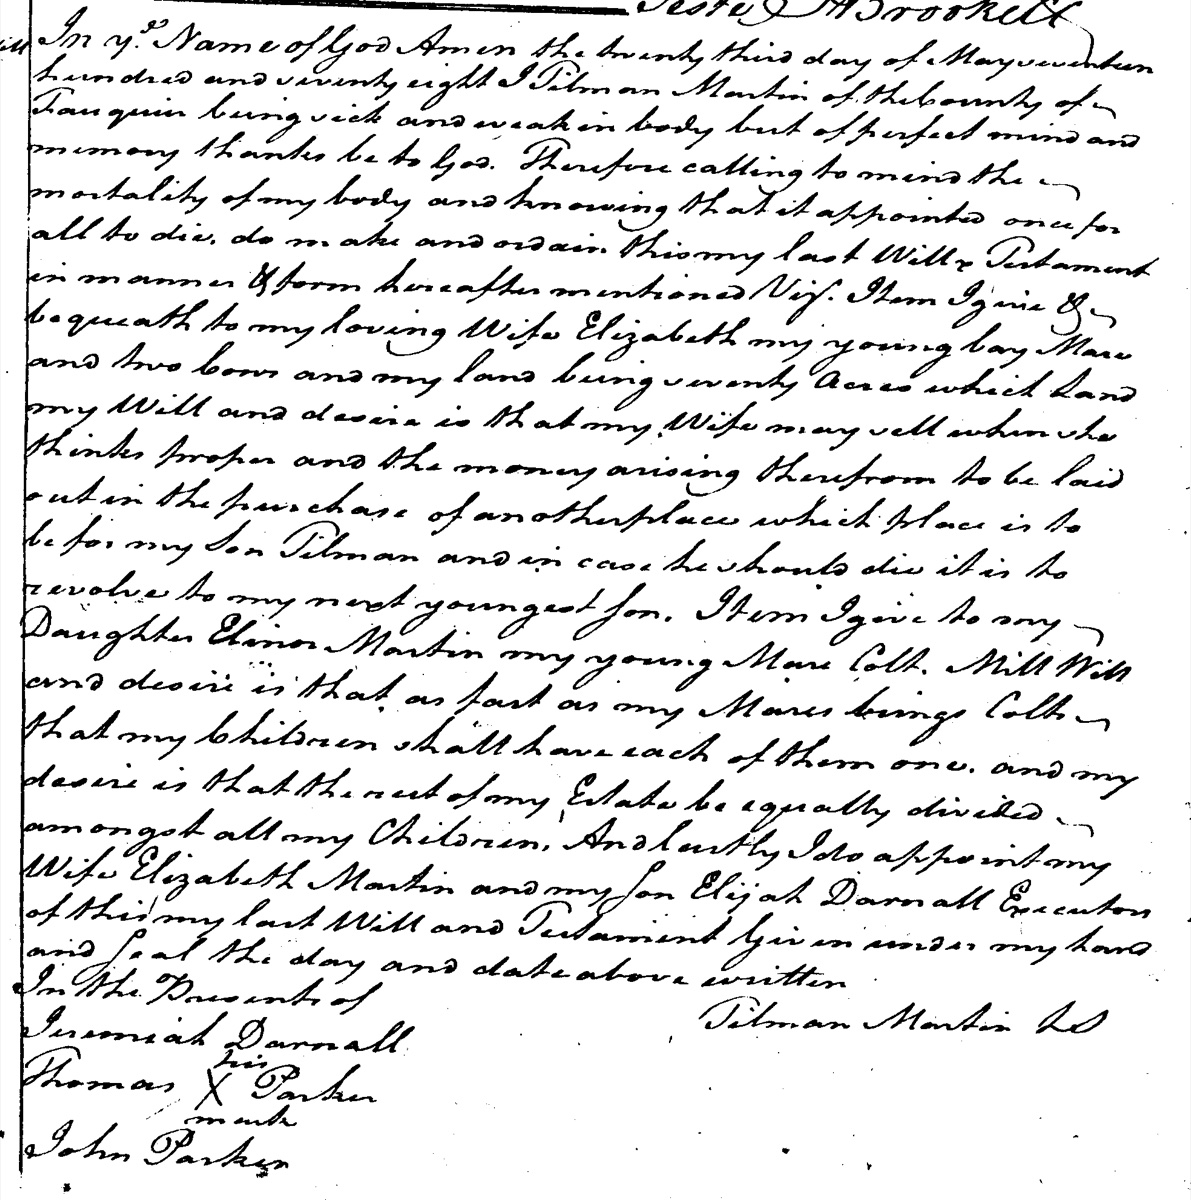 Teste H Brookett
In ye. Name of God Amen the twenty third day of May seventeen
hundred and seventy eight I Tilman Martin of the County of
Fauquier being sick and weak in body but of perfect mind and
memory thanks be to God. Therefore calling to mind the
mortality of my body and knowing that it appointed once for
all to die. do make and ordain this my last Will & Testament
in manner & form hereafter mentioned Viz. Item I give &
bequeath to my loving Wife Elizabeth my young bay Mare
and two Cows and my land being seventy Acres which Land
my Will and desire is that my Wife may sell when she
thinks proper and the money arising therefrom to be laid
out in the purchase of another place which place is to
be for my Son Tilman and in case he should die it is to
revolve to my next youngest son. Item I give to my
Daughter Elinor Martin my young Mare Colt. Mill Will
and desire is that as fast as my Mares brings Colts
that my Children shall have each of them one. and my
desire is that the rest of my Estate be equally divided
amongst all my Children. And lastly I do appoint my
Wife Elizabeth Martin and my son Elijah Darnall Executors
of this my last Will and Testament Given under my hand
and Seal the day and date above written
In the Presents of
Tilman Martin LS
Jeremiah Darnall
his
Thomas X Parker
mark
John Parker